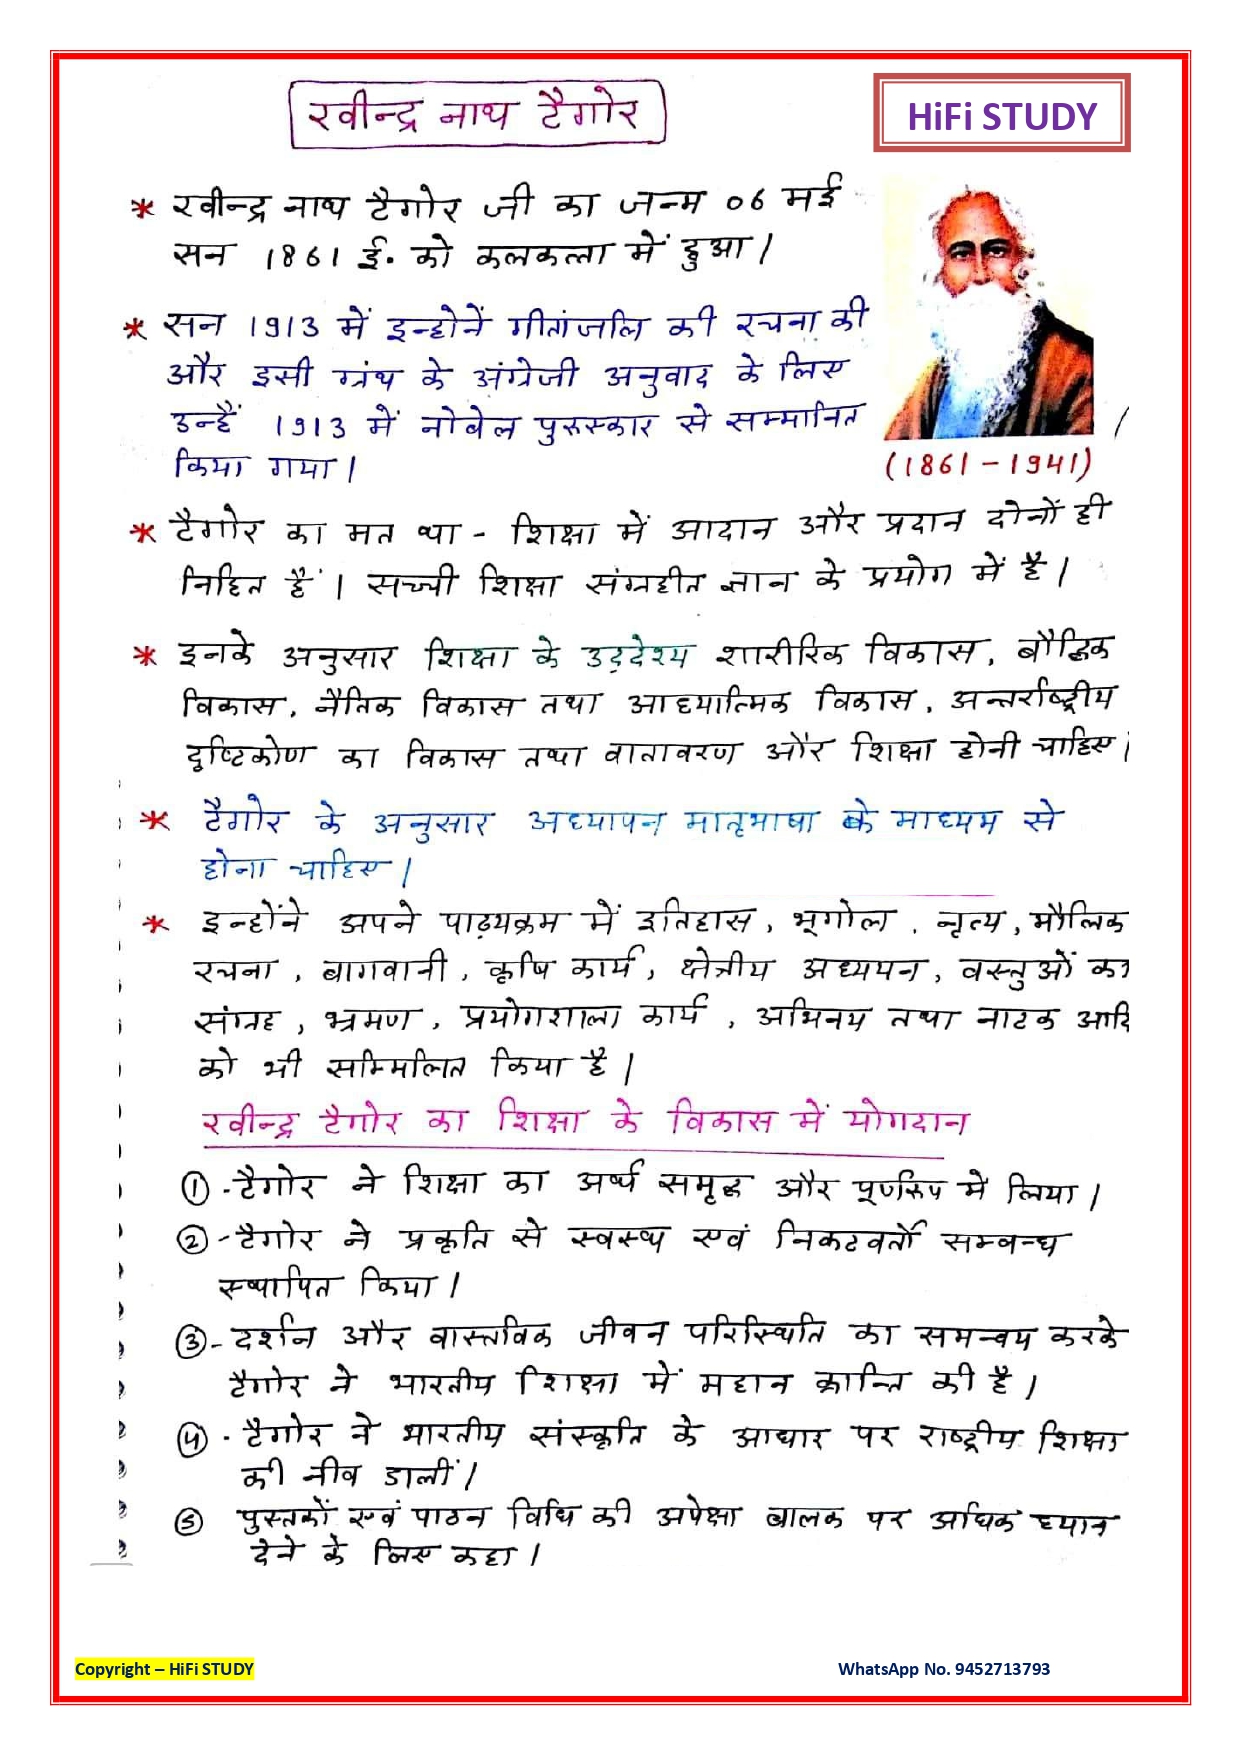 रवीन्द्र नाथ टैगोर
HiFi STUDY
* रवीन्द्र नाथ टैगोर जी का जन्म 06 मई
सन 1861 ई. को कलकत्ता में हुआ।
* सन 1913 में इन्होनें गीतांजलि की रचना की
और इसी ग्रंथ के अंग्रेजी अनुवाद के लिए
उन्हें 1913 में नोबेल पुरुस्कार से सम्मानित
किया गया।
(1861 - 1941)
* टैगोर का मत था - शिक्षा में आदान और प्रदान दोनों ही
निहित हैं। सच्ची शिक्षा संग्रहीत ज्ञान के प्रयोग में है।
* इनके अनुसार शिक्षा के उद्देश्य शारीरिक विकास, बौद्धिक
विकास, नैतिक विकास तथा आध्यात्मिक विकास, अन्तर्राष्ट्रीय
दृष्टिकोण का विकास तथा वातावरण और शिक्षा होनी चाहिए।
* टैगोर के अनुसार अध्यापन मातृभाषा के माध्यम से
होना चाहिए।
* इन्होंने अपने पाठ्यक्रम में इतिहास, भूगोल, नृत्य, मौलिक
रचना, बागवानी, कृषि कार्य, क्षेत्रीय अध्ययन, वस्तुओं का
संग्रह, भ्रमण, प्रयोगशाला कार्य, अभिनय तथा नाटक आदि
को भी सम्मिलित किया है।
रवीन्द्र टैगोर का शिक्षा के विकास में योगदान
① - टैगोर ने शिक्षा का अर्थ समृद्ध और पूर्णरूप में लिया।
② - टैगोर ने प्रकृति से स्वस्थ एवं निकटवर्ती सम्बन्ध
स्थापित किया।
③ - दर्शन और वास्तविक जीवन परिस्थिति का समन्वय करके
टैगोर ने भारतीय शिक्षा में महान क्रान्ति की है।
④ - टैगोर ने भारतीय संस्कृति के आधार पर राष्ट्रीय शिक्षा
की नीव डालीं।
⑤ पुस्तकों एवं पाठन विधि की अपेक्षा बालक पर अधिक ध्यान
देने के लिए कहा।
Copyright – HiFi STUDY
WhatsApp No. 9452713793